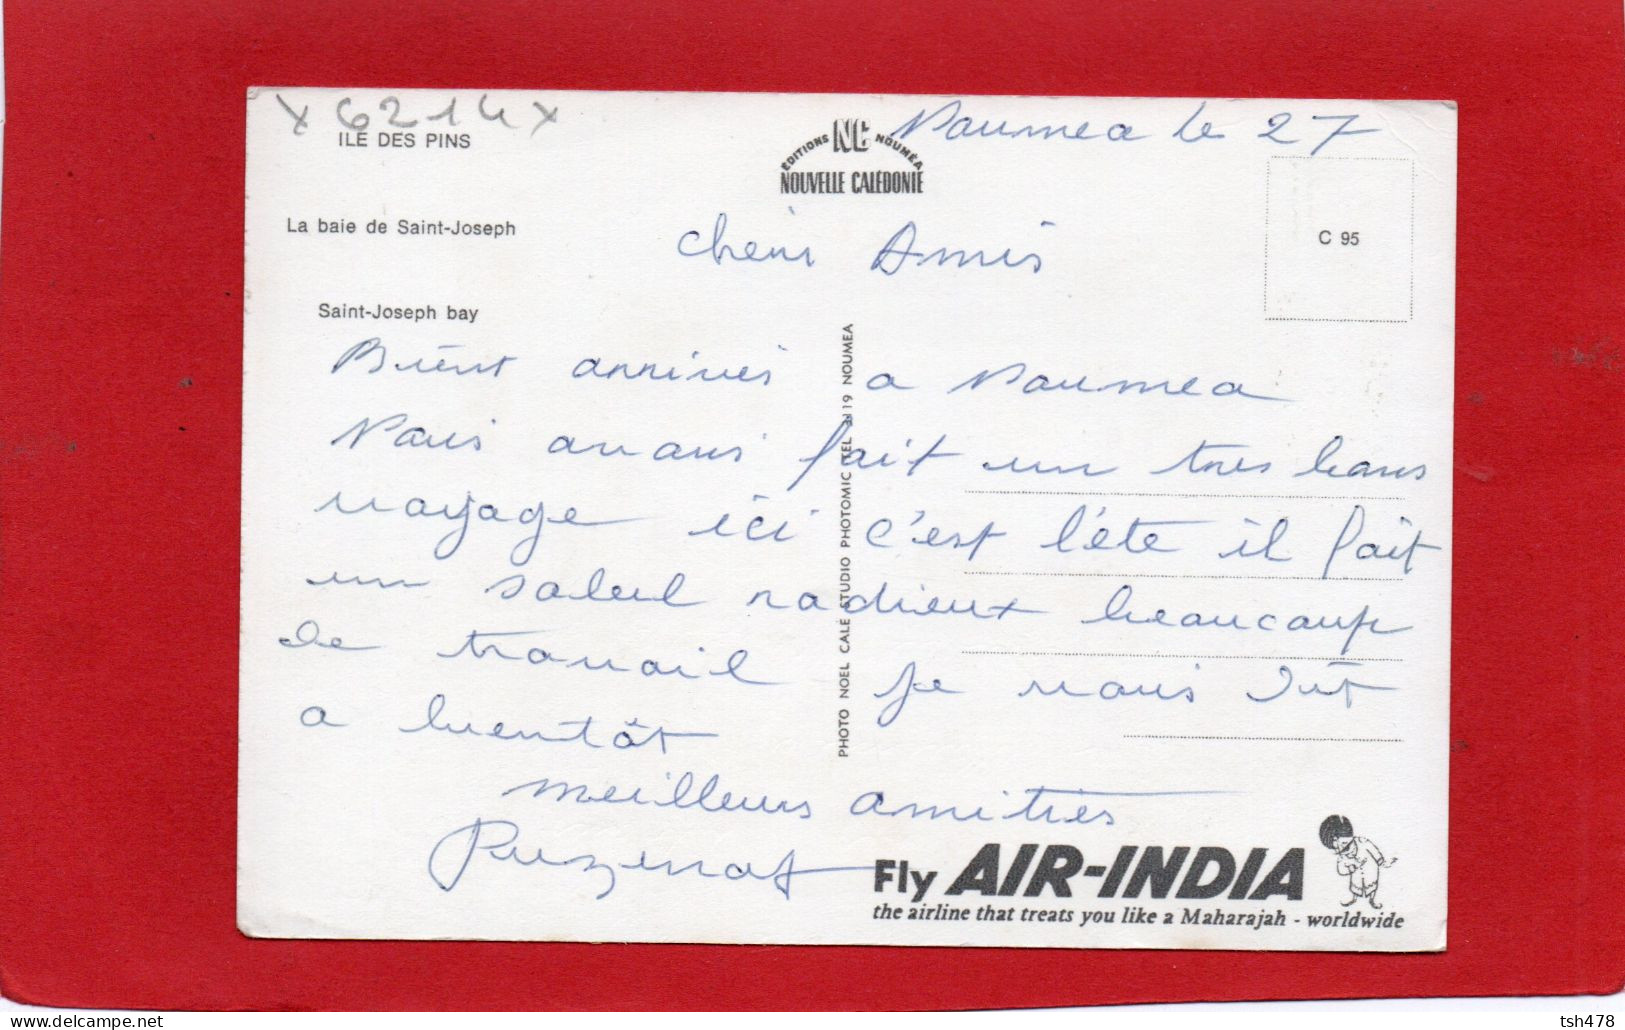 x 6214 x
ILE DES PINS
La baie de Saint-Joseph
Saint-Joseph bay
EDITIONS NC NOUMÉA
NOUVELLE CALÉDONIE
Noumea le 27
C 95
Chers Amis
Bient arrivés a Noumea
Nous avons fait un tres bons
voyage ici c'est l'été il fait
un soleil radieux beaucoup
de travail je vous dit
a bientôt
meilleurs amitiés
PHOTO NOEL CALE STUDIO PHOTOMIC TEL 3119 NOUMEA
Fly AIR-INDIA
the airline that treats you like a Maharajah - worldwide
delcampe.net
tsh478